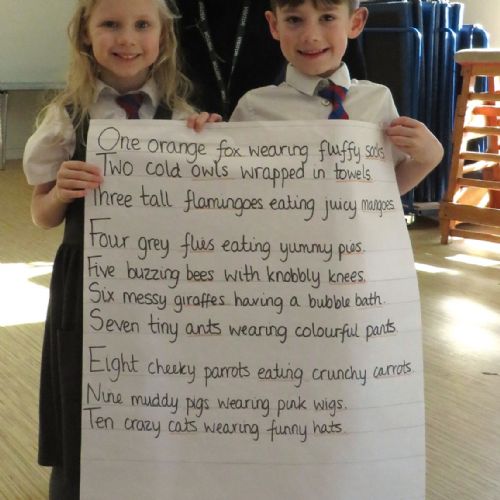 One orange fox wearing fluffy socks
Two cold owls wrapped in towels
Three tall flamingoes eating juicy mangoes.
Four grey flies eating yummy pies.
Five buzzing bees with knobbly knees.
Six messy giraffes having a bubble bath.
Seven tiny ants wearing colourful pants
Eight cheeky parrots eating crunchy carrots.
Nine muddy pigs wearing pink wigs.
Ten crazy cats wearing funny hats.